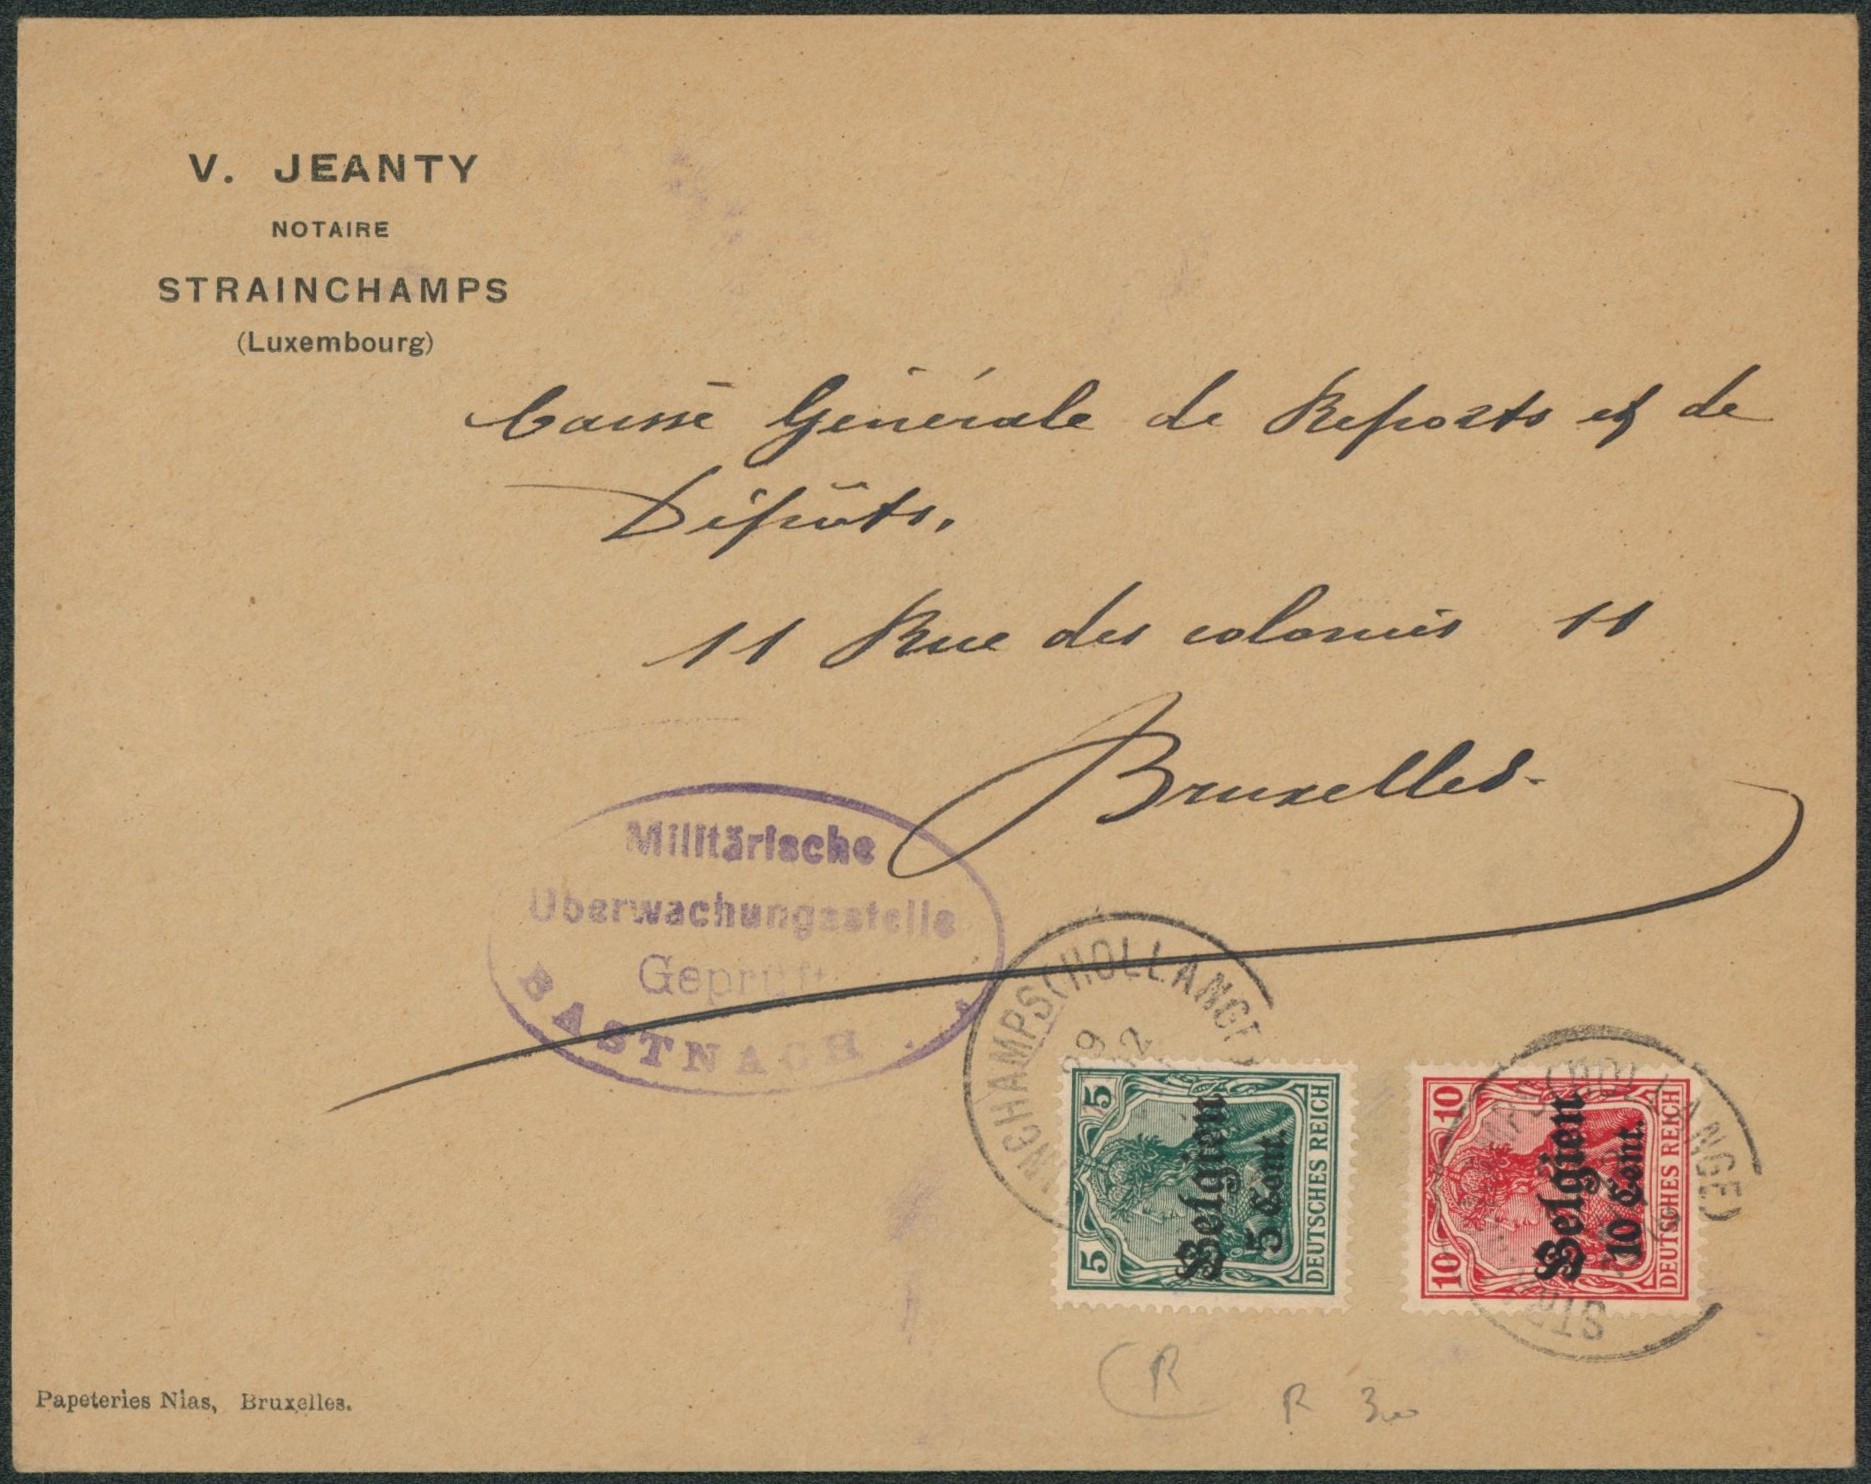 V. JEANTY
NOTAIRE
STRAINCHAMPS
(Luxembourg)
Caisse Générale de Reports et de
Dépôts.
11 Rue des colonies 11
Bruxelles.
Militärische
Überwachungsstelle
Geprüft
BASTNACH
NCHAMPS (HOLLANGE)
5 5
Belgien
5 Cent.
DEUTSCHES REICH
10 10
Belgien
10 Cent.
DEUTSCHES REICH
(HOLLANGE)
R
R
Papeteries Nias, Bruxelles.